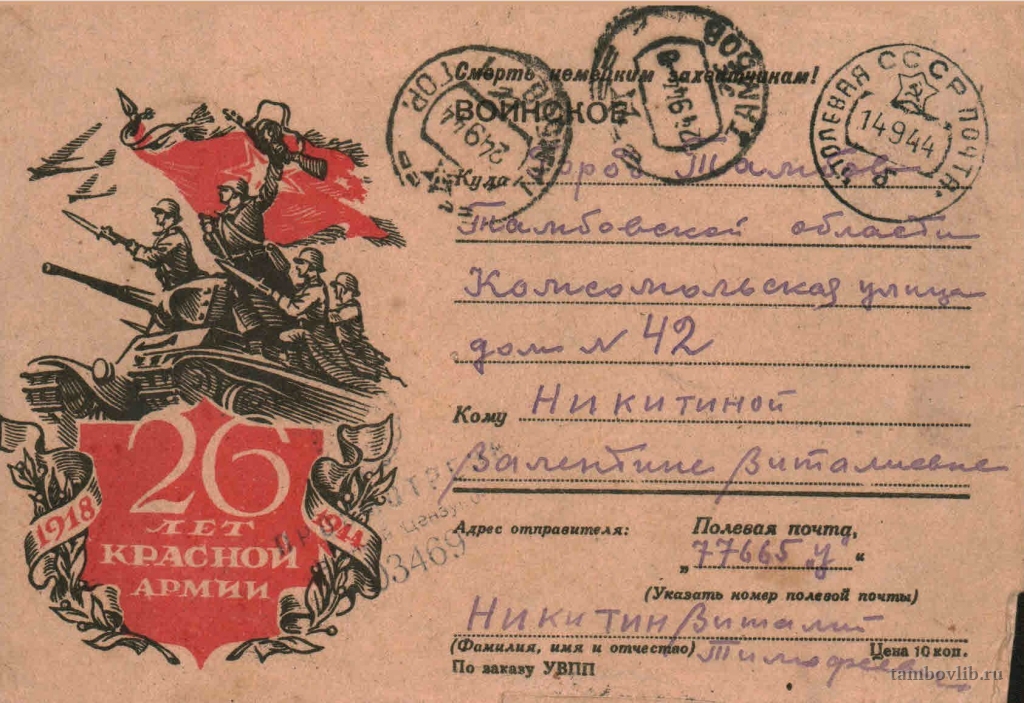 Смерть немецким захватчинам!
ВОИНСКОЕ
ТАМБОВ
24 9 44
24 9 44
ПОЛЕВАЯ ПОЧТА СССР
14 9 44
Куда Город Тамбов
Тамбовской области
Комсомольская улица
дом N 42
Кому Никитиной
Валентине Виталиевне
26
ЛЕТ
КРАСНОЙ
АРМИИ
1918
1944
03469
Адрес отправителя:
Полевая почта,
„77665 У“
(Указать номер полевой почты)
Никитин Виталий
(Фамилия, имя и отчество)
Цена 10 коп.
По заказу УВПП
tambovlib.ru